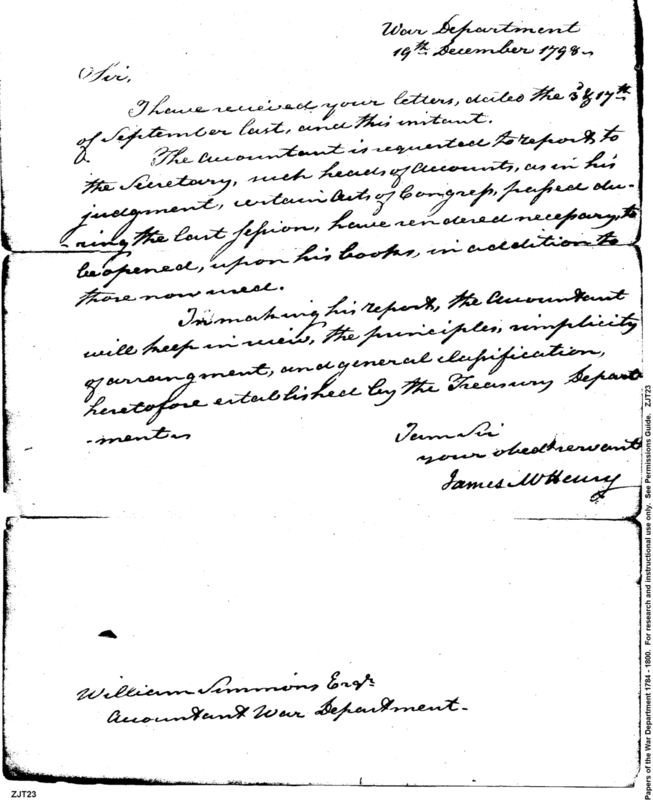 War Department
19th December 1798.
Sir,
I have received your letters, dated the 3d & 17th
of September last, and this instant.
The Accountant is requested to report, to
the Secretary, such heads of accounts, as in his
judgment, certain Acts of Congress, passed du-
-ring the last session, have rendered necessary, to
be opened, upon his books, in addition to
those now used.
In making his report, the Accountant
will keep in view, the principles, simplicity
of arrangment, and general classification,
heretofore established by the Treasury Depart
-ment.
I am Sir
your obedt servant
James McHenry
William Simmons Esqr
Accountant War Department.
ZJT23
Papers of the War Department 1784 - 1800. For research and instructional use only. See Permissions Guide. ZJT23